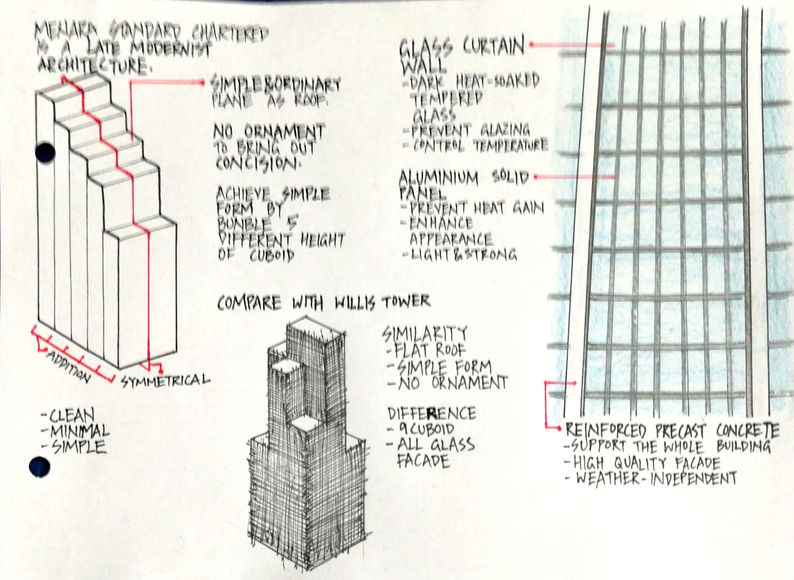 MENARA STANDARD CHARTERED
IS A LATE MODERNIST
ARCHITECTURE.
SIMPLE&ORDINARY
PLANE AS ROOF.
NO ORNAMENT
TO BRING OUT
CONCISION.
ACHIEVE SIMPLE
FORM BY
BUNBLE 5
DIFFERENT HEIGHT
OF CUBOID
ADDITION
SYMMETRICAL
-CLEAN
-MINIMAL
-SIMPLE
COMPARE WITH WILLIS TOWER
SIMILARITY
-FLAT ROOF
-SIMPLE FORM
-NO ORNAMENT
DIFFERENCE
-9 CUBOID
-ALL GLASS
FACADE
GLASS CURTAIN
WALL
-DARK HEAT-SOAKED
TEMPERED
GLASS
-PREVENT GLAZING
-CONTROL TEMPERATURE
ALUMINIUM SOLID
PANEL
-PREVENT HEAT GAIN
-ENHANCE
APPEARANCE
-LIGHT&STRONG
REINFORCED PRECAST CONCRETE
-SUPPORT THE WHOLE BUILDING
-HIGH QUALITY FACADE
-WEATHER-INDEPENDENT